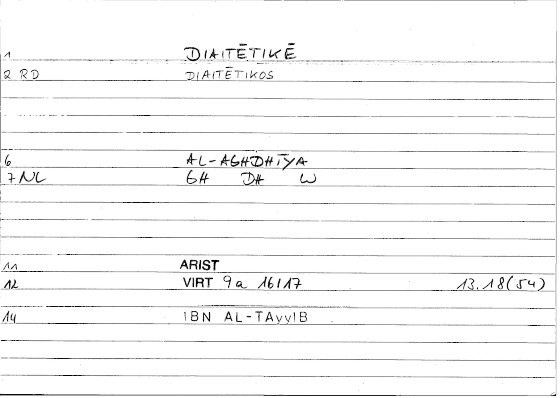 1 DIAITĒTIKĒ
2 RD DIAITĒTIKOS
6 AL-AGHDHĪYA
7 NL GH DH W
11 ARIST
12 VIRT 9a 16/17 13.18(54)
14 IBN AL-TAyyIB